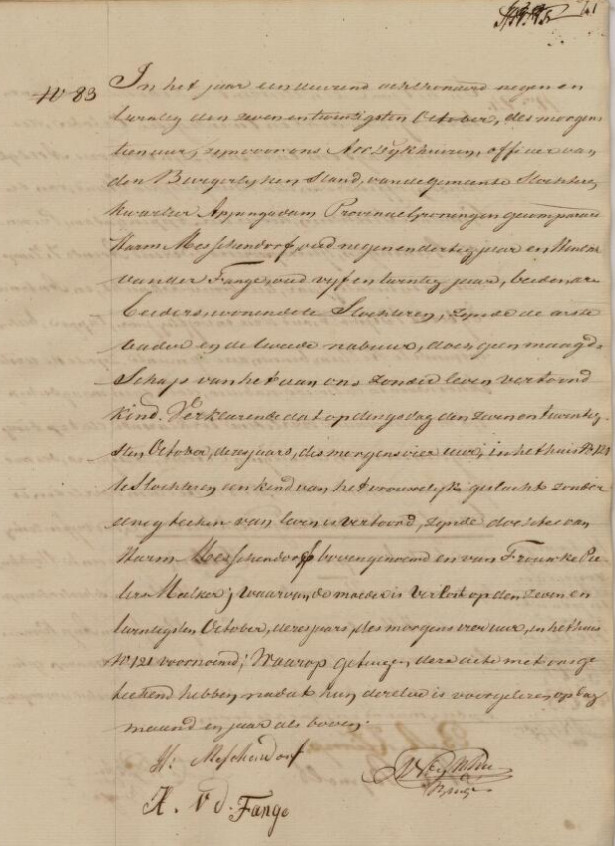 41
N 83 In het jaar een duizend achthonderd negen en
twintig den zeven en twintigsten October, des morgens
tien uur, zijn voor ons officier van
den Burgerlyken Stand, van de gemeente Slochteren,
kwartier Appingadam Provincie Groningen gecompareerd
Harm Messchendorf, oud negen en dertig jaar en
van der Fange, oud vyf en twintig jaar, beiden ar
beiders, wonende te Slochteren, zynde de eerste
vader en de tweede nabuur, doch geen maagd
Schap van het aan ons zonder leven vertoond
kind. Verklarende dat op dingsdag den zeven en twintig
sten October, dezes jaars, des morgens vier uur, in het huis N 121
te Slochteren een kind van het vrouwelyk geslacht zonder
eenig teeken van leven is vertoond, zynde dochter van
Harm Messchendorf bovengenoemd en van Frouwke Pie
ters Mulker; waarvan de moeder is verlost op den zeven en
twintigsten October, dezes jaars, des morgens vier uur, in het huis
N 121 voornoemd; Waarop getuigen deze acte met ons ge
teekend hebben nadat hun dezelve is voorgelezen, op dag
maand en jaar als boven.
H: Messchendorf
K. v d. Fange